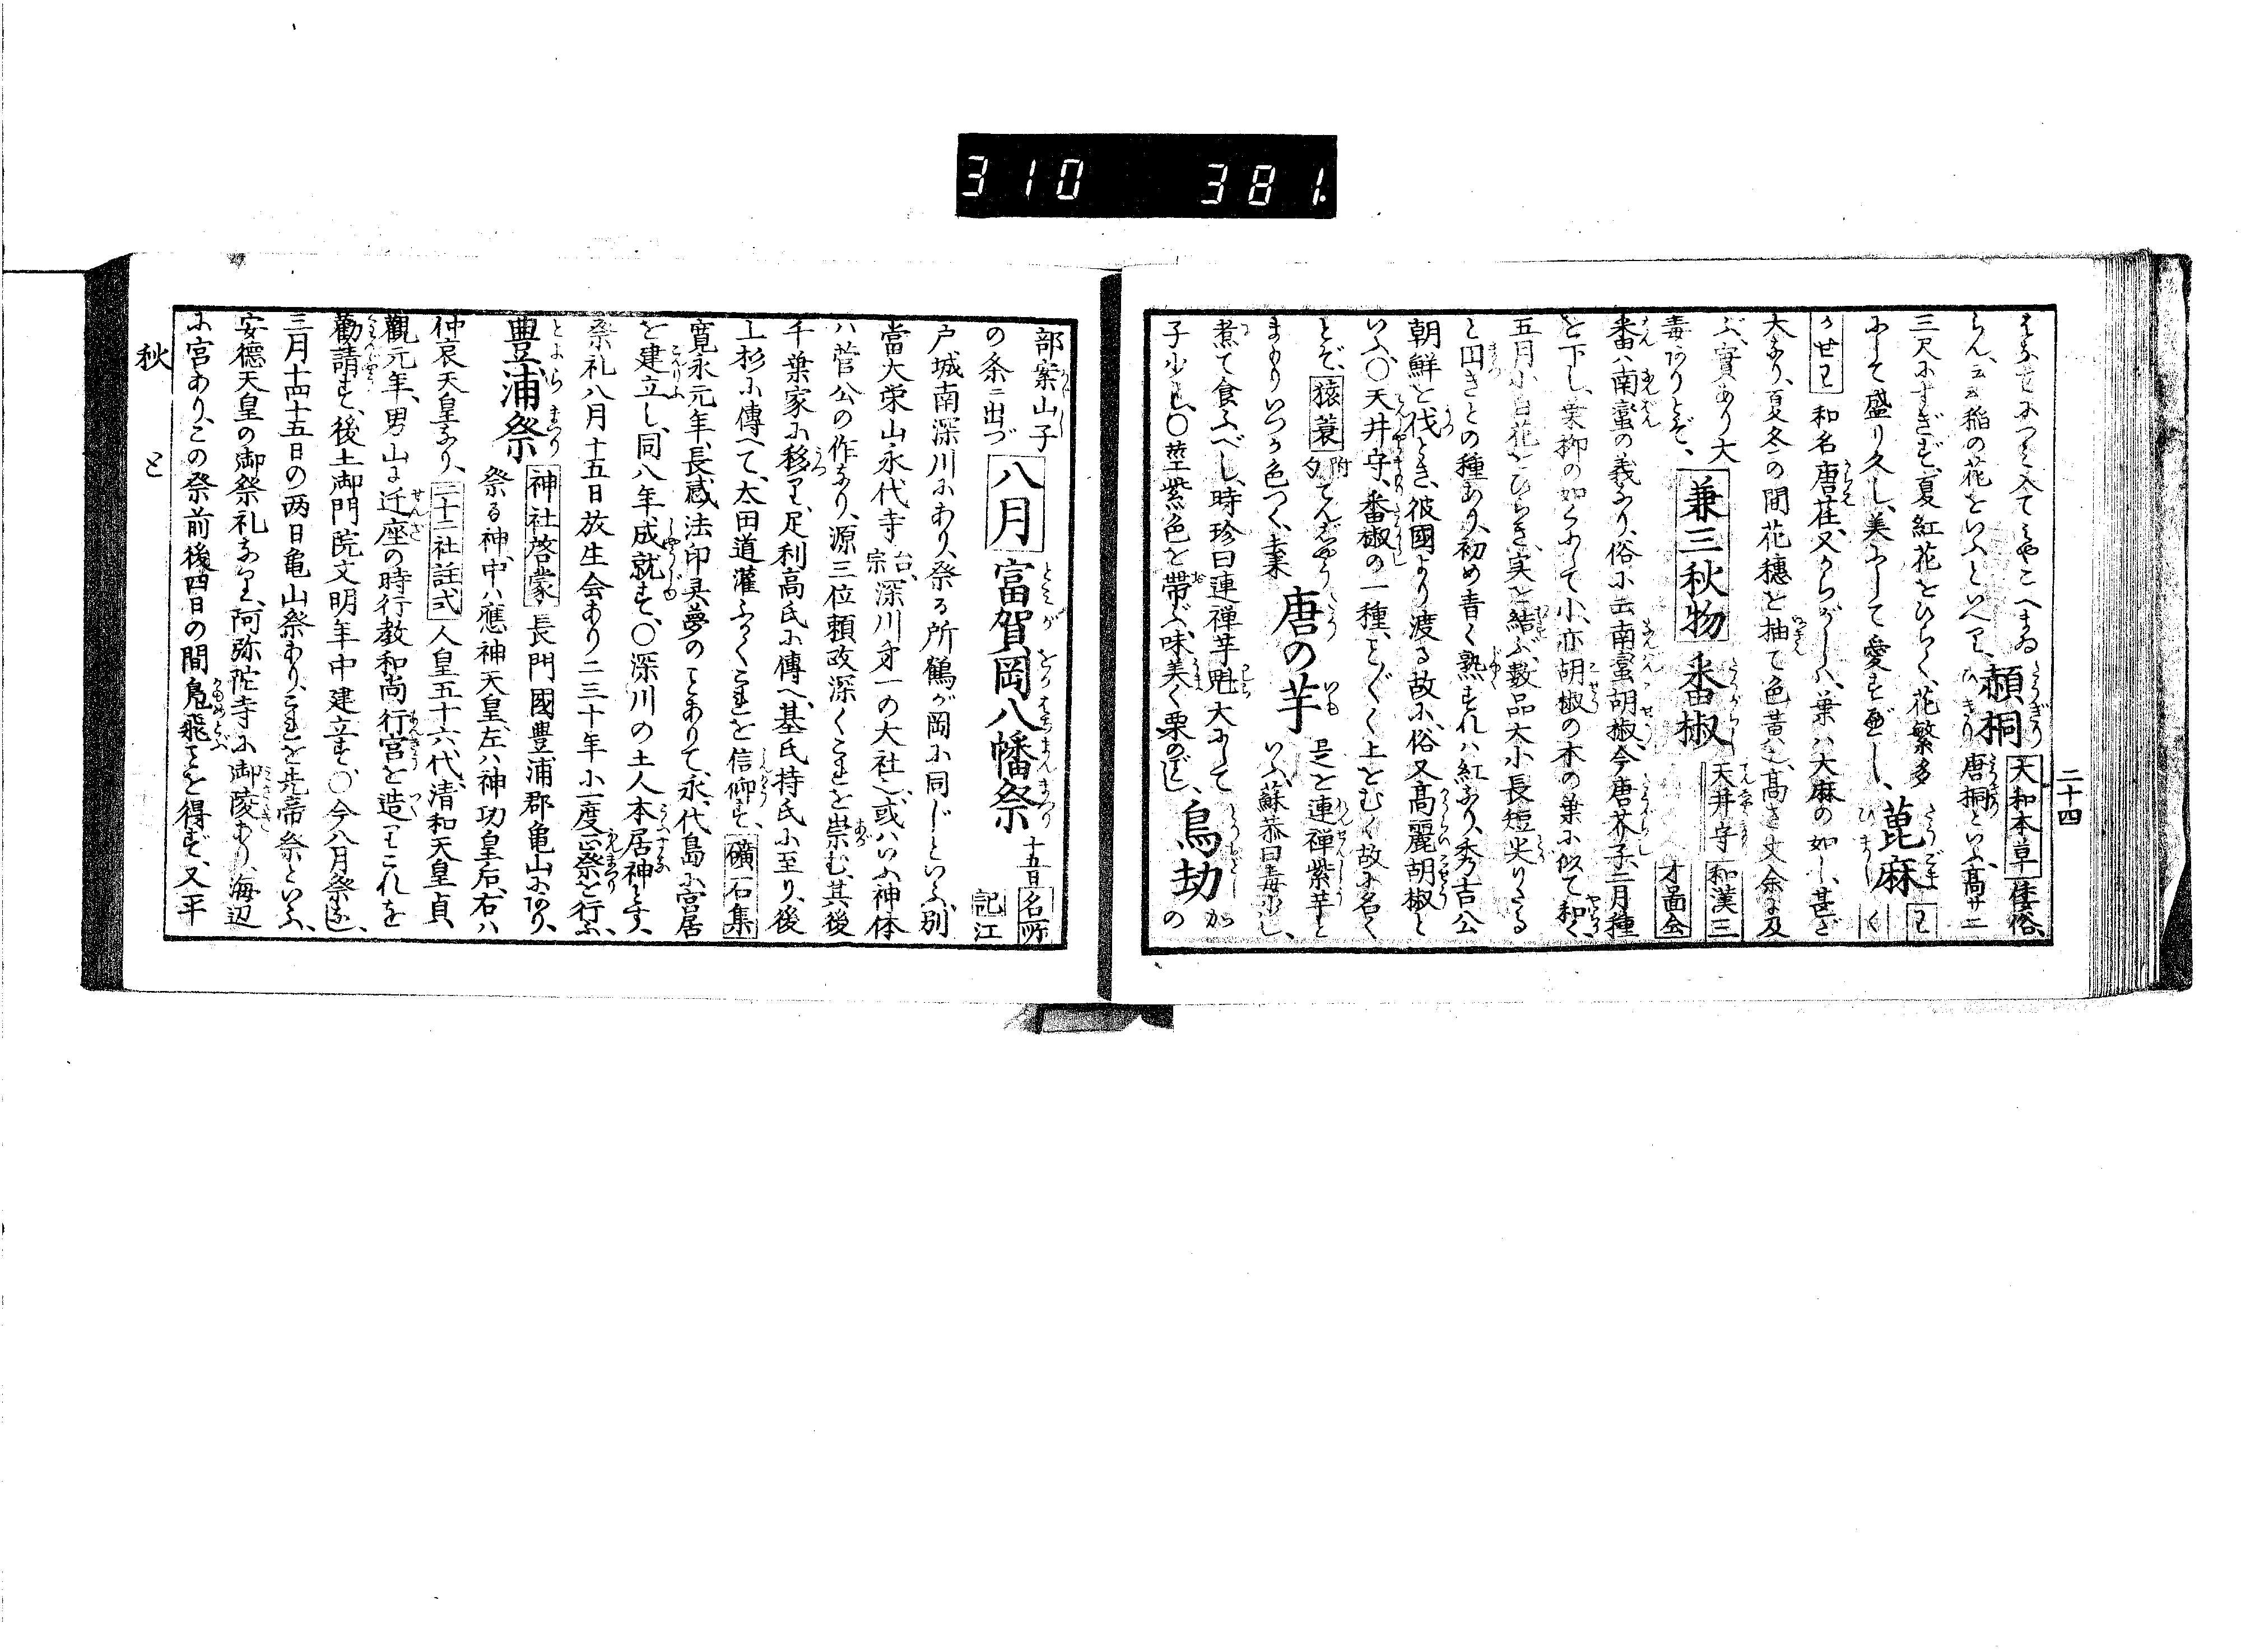 310 381
二十四
らん、云云稲の花をいふといへり、
頳桐
天和本草
倭俗、
唐桐といふ、高サ二
三尺にすぎず、夏紅花をひらく、花繁多
にして盛り久し、美にして愛すべし、
蓖麻
和名唐荏、又からがしハ、葉ハ大麻の如し、甚ざ
大なり、夏冬の間花穂を抽て色黄也、高さ丈余に及
ぶ、實あり大
毒ありとぞ、
兼三秋物
番椒
天井守
和漢三
才圖会
番ハ南蛮の義なり、俗に云南蛮胡椒、今唐芥子、二月種
を下し、葉柳の如くにして小、亦胡椒の木の葉に似て和く、
五月小白花をひらき、実を結ぶ、數品大小長短尖りたる
と囙きとの種あり、初め青く熟すれハ紅なり、秀吉公
朝鮮を伐とき、彼國より渡る故に、俗又高麗胡椒と
いふ、〇天井守、番椒の一種、ことごとく上をむく故に名く
とぞ、
猿蓑
附
夕
てんじやう
まもりいつか色つく
唐の芋
是を連禅紫芋と
いふ、蘇恭曰毒少し、
煮て食ふべし、時珍曰連禅芋魁大にして
子少し、〇茎紫色を帯ぶ、味美く栗のごとし、
鳥劫
の
部案山子
の条ニ出づ
八月
富賀岡八幡祭
十五日
名所
記
江
戸城南深川にあり、祭る所鶴が岡に同じといふ、別
當大栄山永代寺
台
宗
深川第一の大社也、或ハいふ神体
ハ菅公の作なり、源三位頼政深くこれを崇む、其後
千葉家に移り、足利高氏に傳へ、基氏持氏に至り、後
上杉に傳へて、太田道灌ふかくこれを信仰す、
礦石集
寛永元年、長盛法印異夢のことありて、永代島に宮居
を建立し、同八年成就す、〇深川の土人本居神とす、
祭礼八月十五日放生会あり二三十年に一度正祭を行ふ、
豊浦祭
とよらまつり
神社啓蒙
長門國豊浦郡亀山にあり、
祭る神、中ハ應神天皇、左ハ神功皇后、右ハ
仲哀天皇なり、
二十二社註式
人皇五十六代、清和天皇貞
觀元年、男山に迁座の時行教和尚行宮を造りこれを
勸請す、後土御門院文明年中建立す、〇今八月祭る、
三月十四十五日の両日亀山祭あり、これを先帝祭といふ、
安徳天皇の御祭礼なり、阿弥陀寺に御陵あり、海辺
に宮あり、この祭前後四日の間鳧飛ことを得ず、又平
秋 と